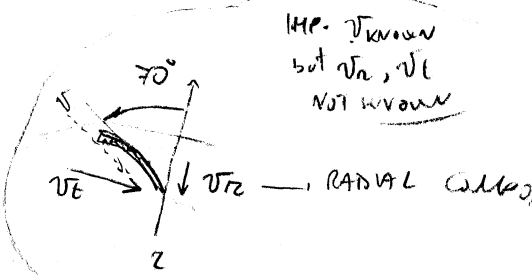 IMP. V KNOWN
but Vr, Vt
NOT KNOWN
70°
V
Vt
Vr → RADIAL COMPO
r